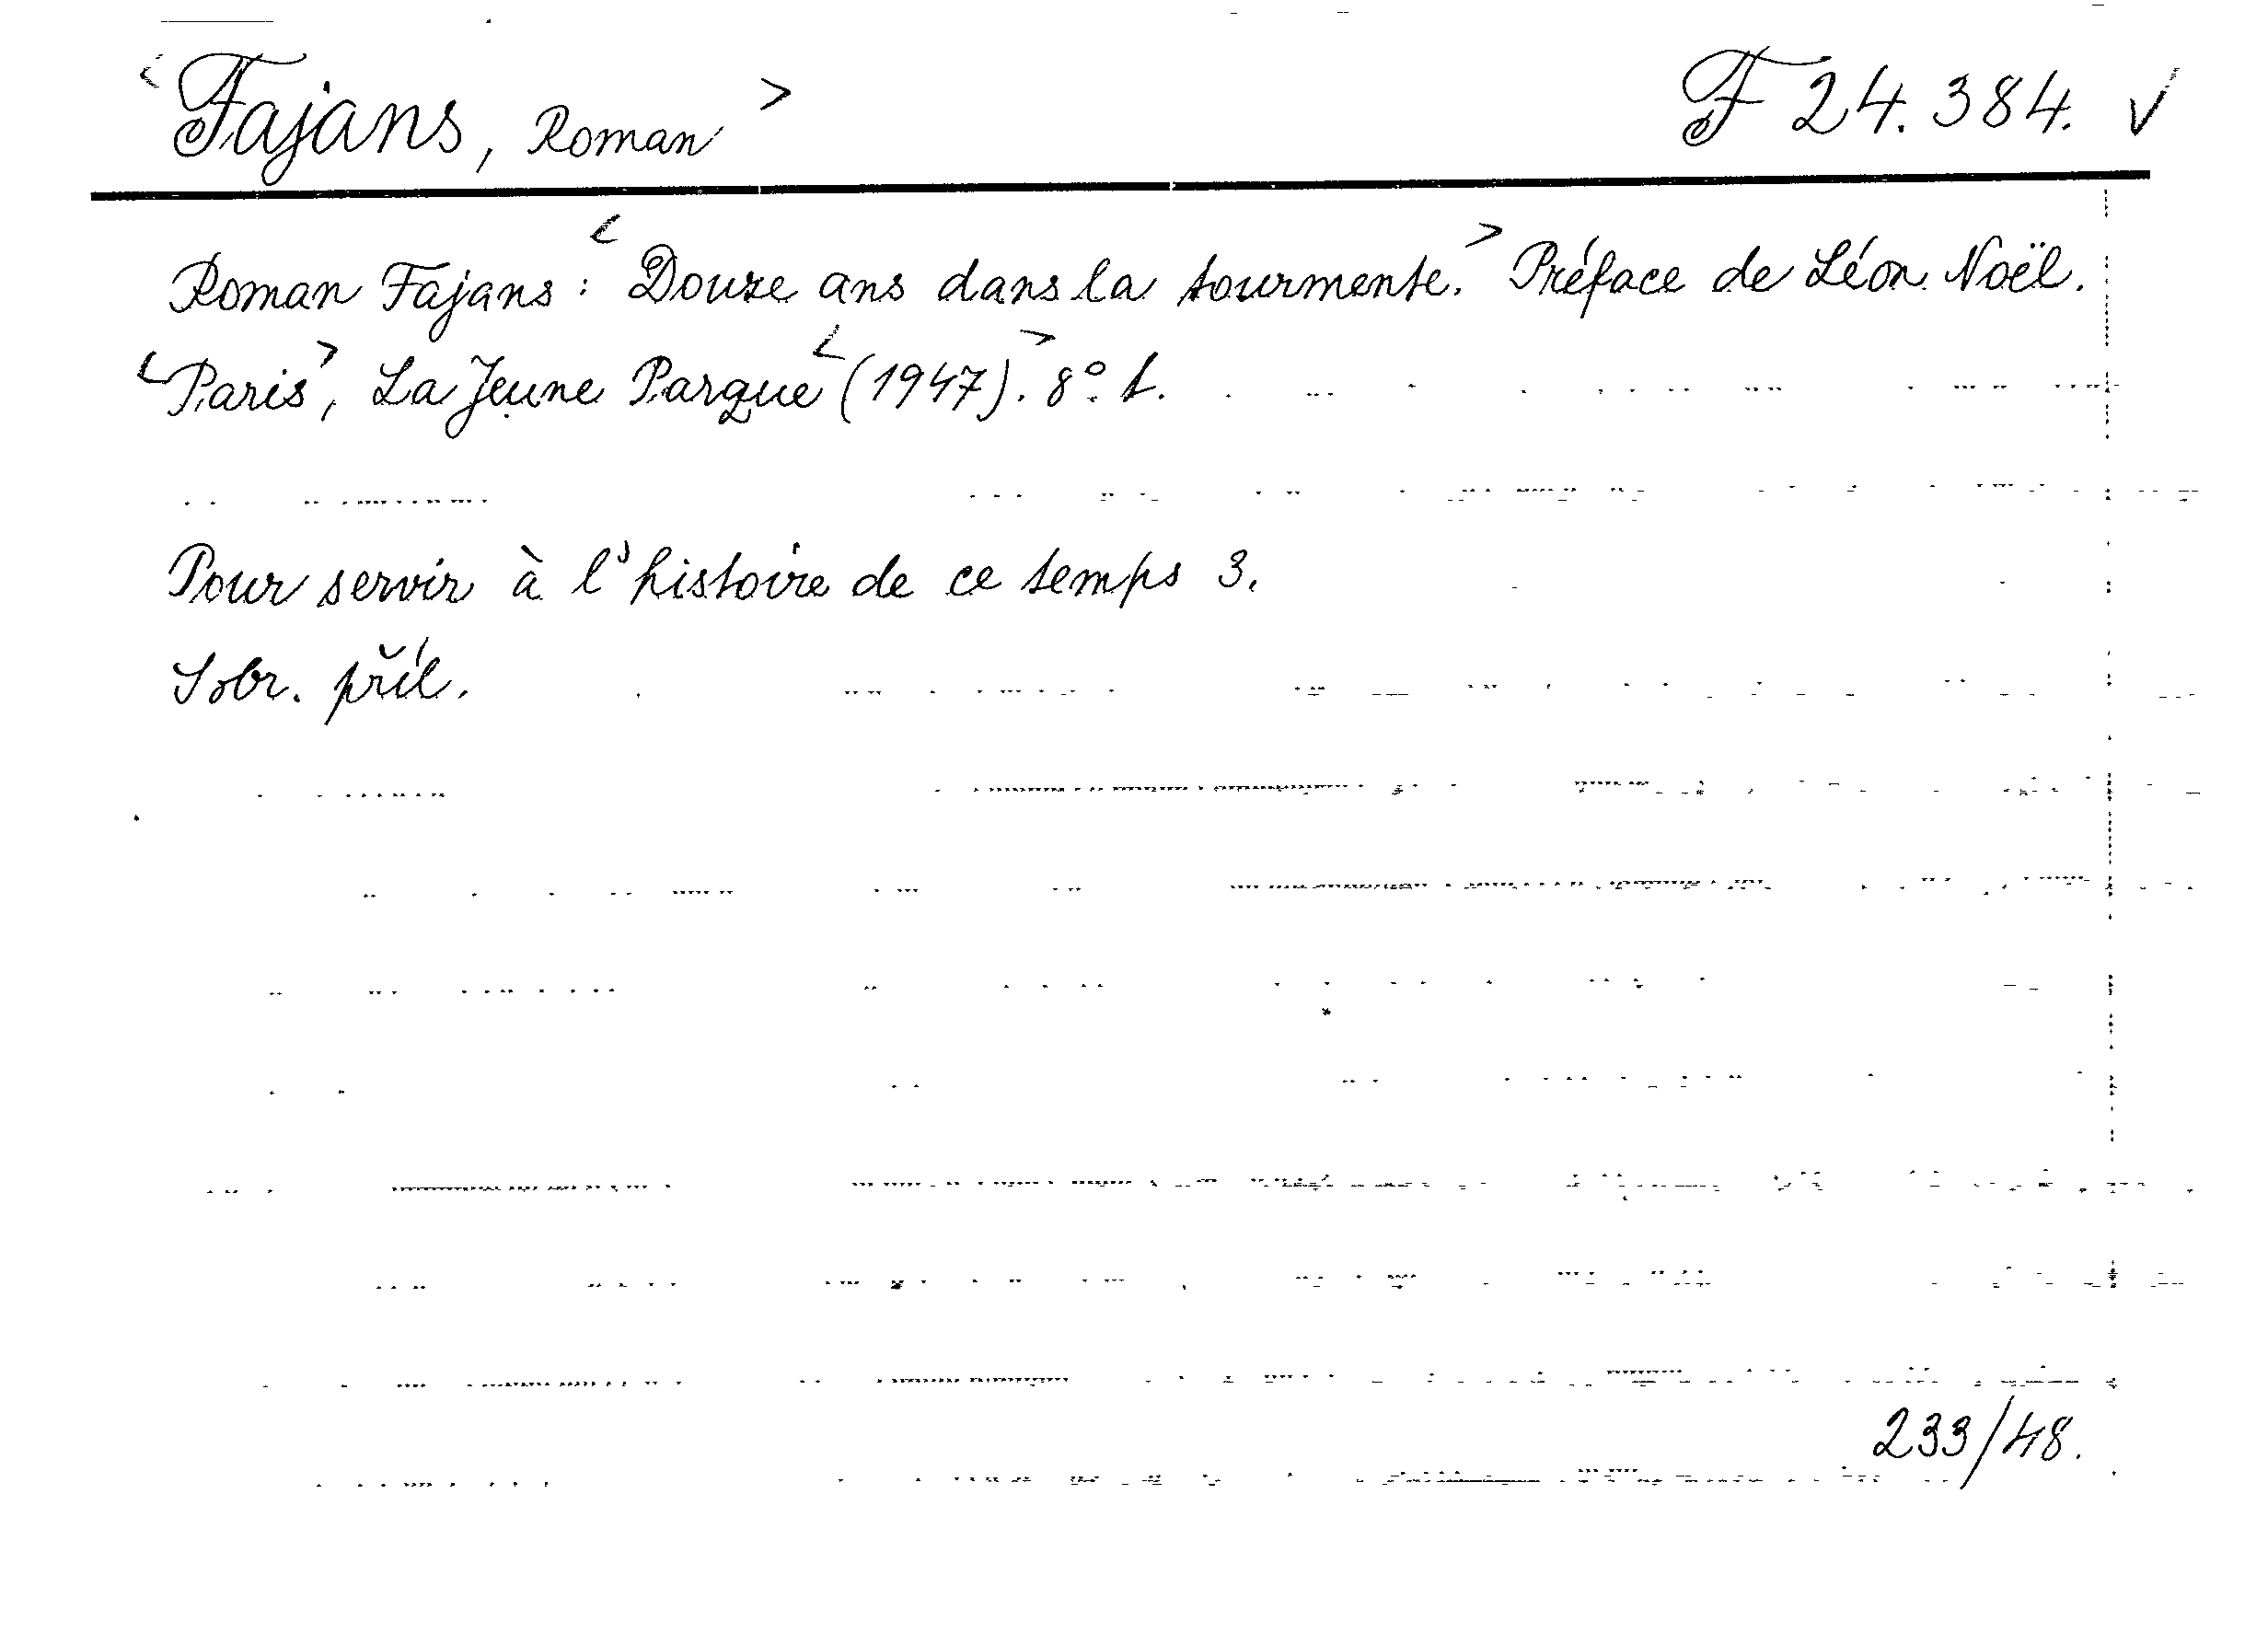 <Fajans, Roman> F 24.384. √
Roman Fajans: <Douze ans dans la tourmente.> Préface de Léon Noël.
<Paris>, La Jeune Parque <(1947).> 8°. t.
Pour servir à l'histoire de ce temps 3.
S obr. příl.
233/48.